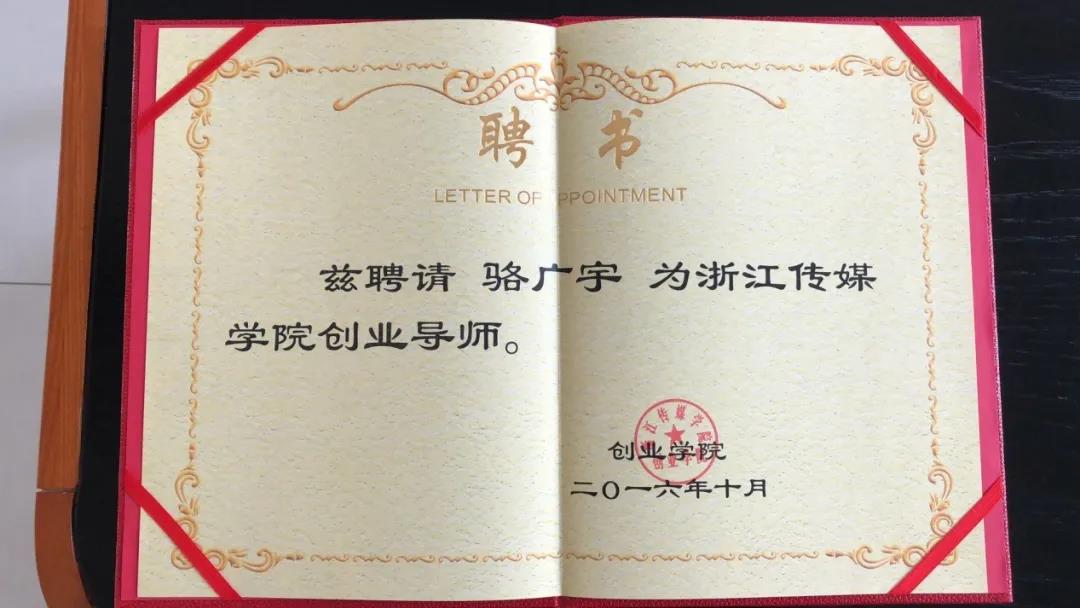 聘 书
LETTER OF PPOINTMENT
兹聘请 骆广宇 为浙江传媒
学院创业导师。
浙江传媒学院
创业学院
创业学院
二〇一六年十月